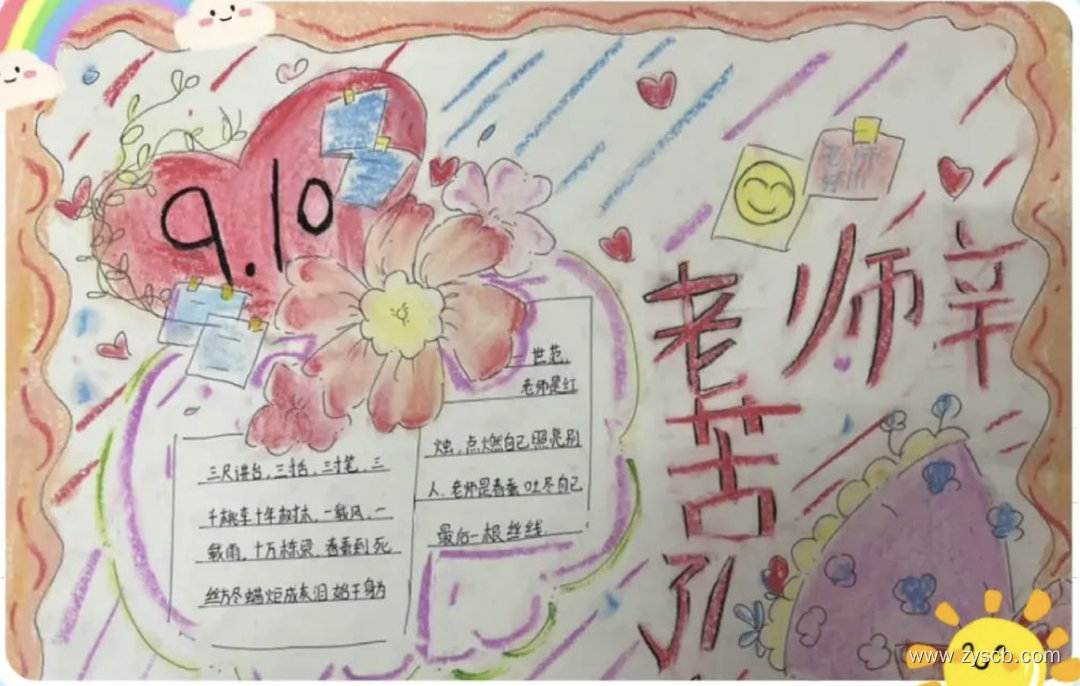 9.10
老师
老师辛
苦
了
三尺讲台,三寸舌,三寸笔,三
千桃李十年树木,一载风,一
载雨,十万栋梁,春蚕到死
丝方尽蜡炬成灰泪始干身为
一世范,
老师是红
烛,点燃自己照亮别
人,老师是春蚕吐尽自己
最后一根丝线.
www.zyscb.com